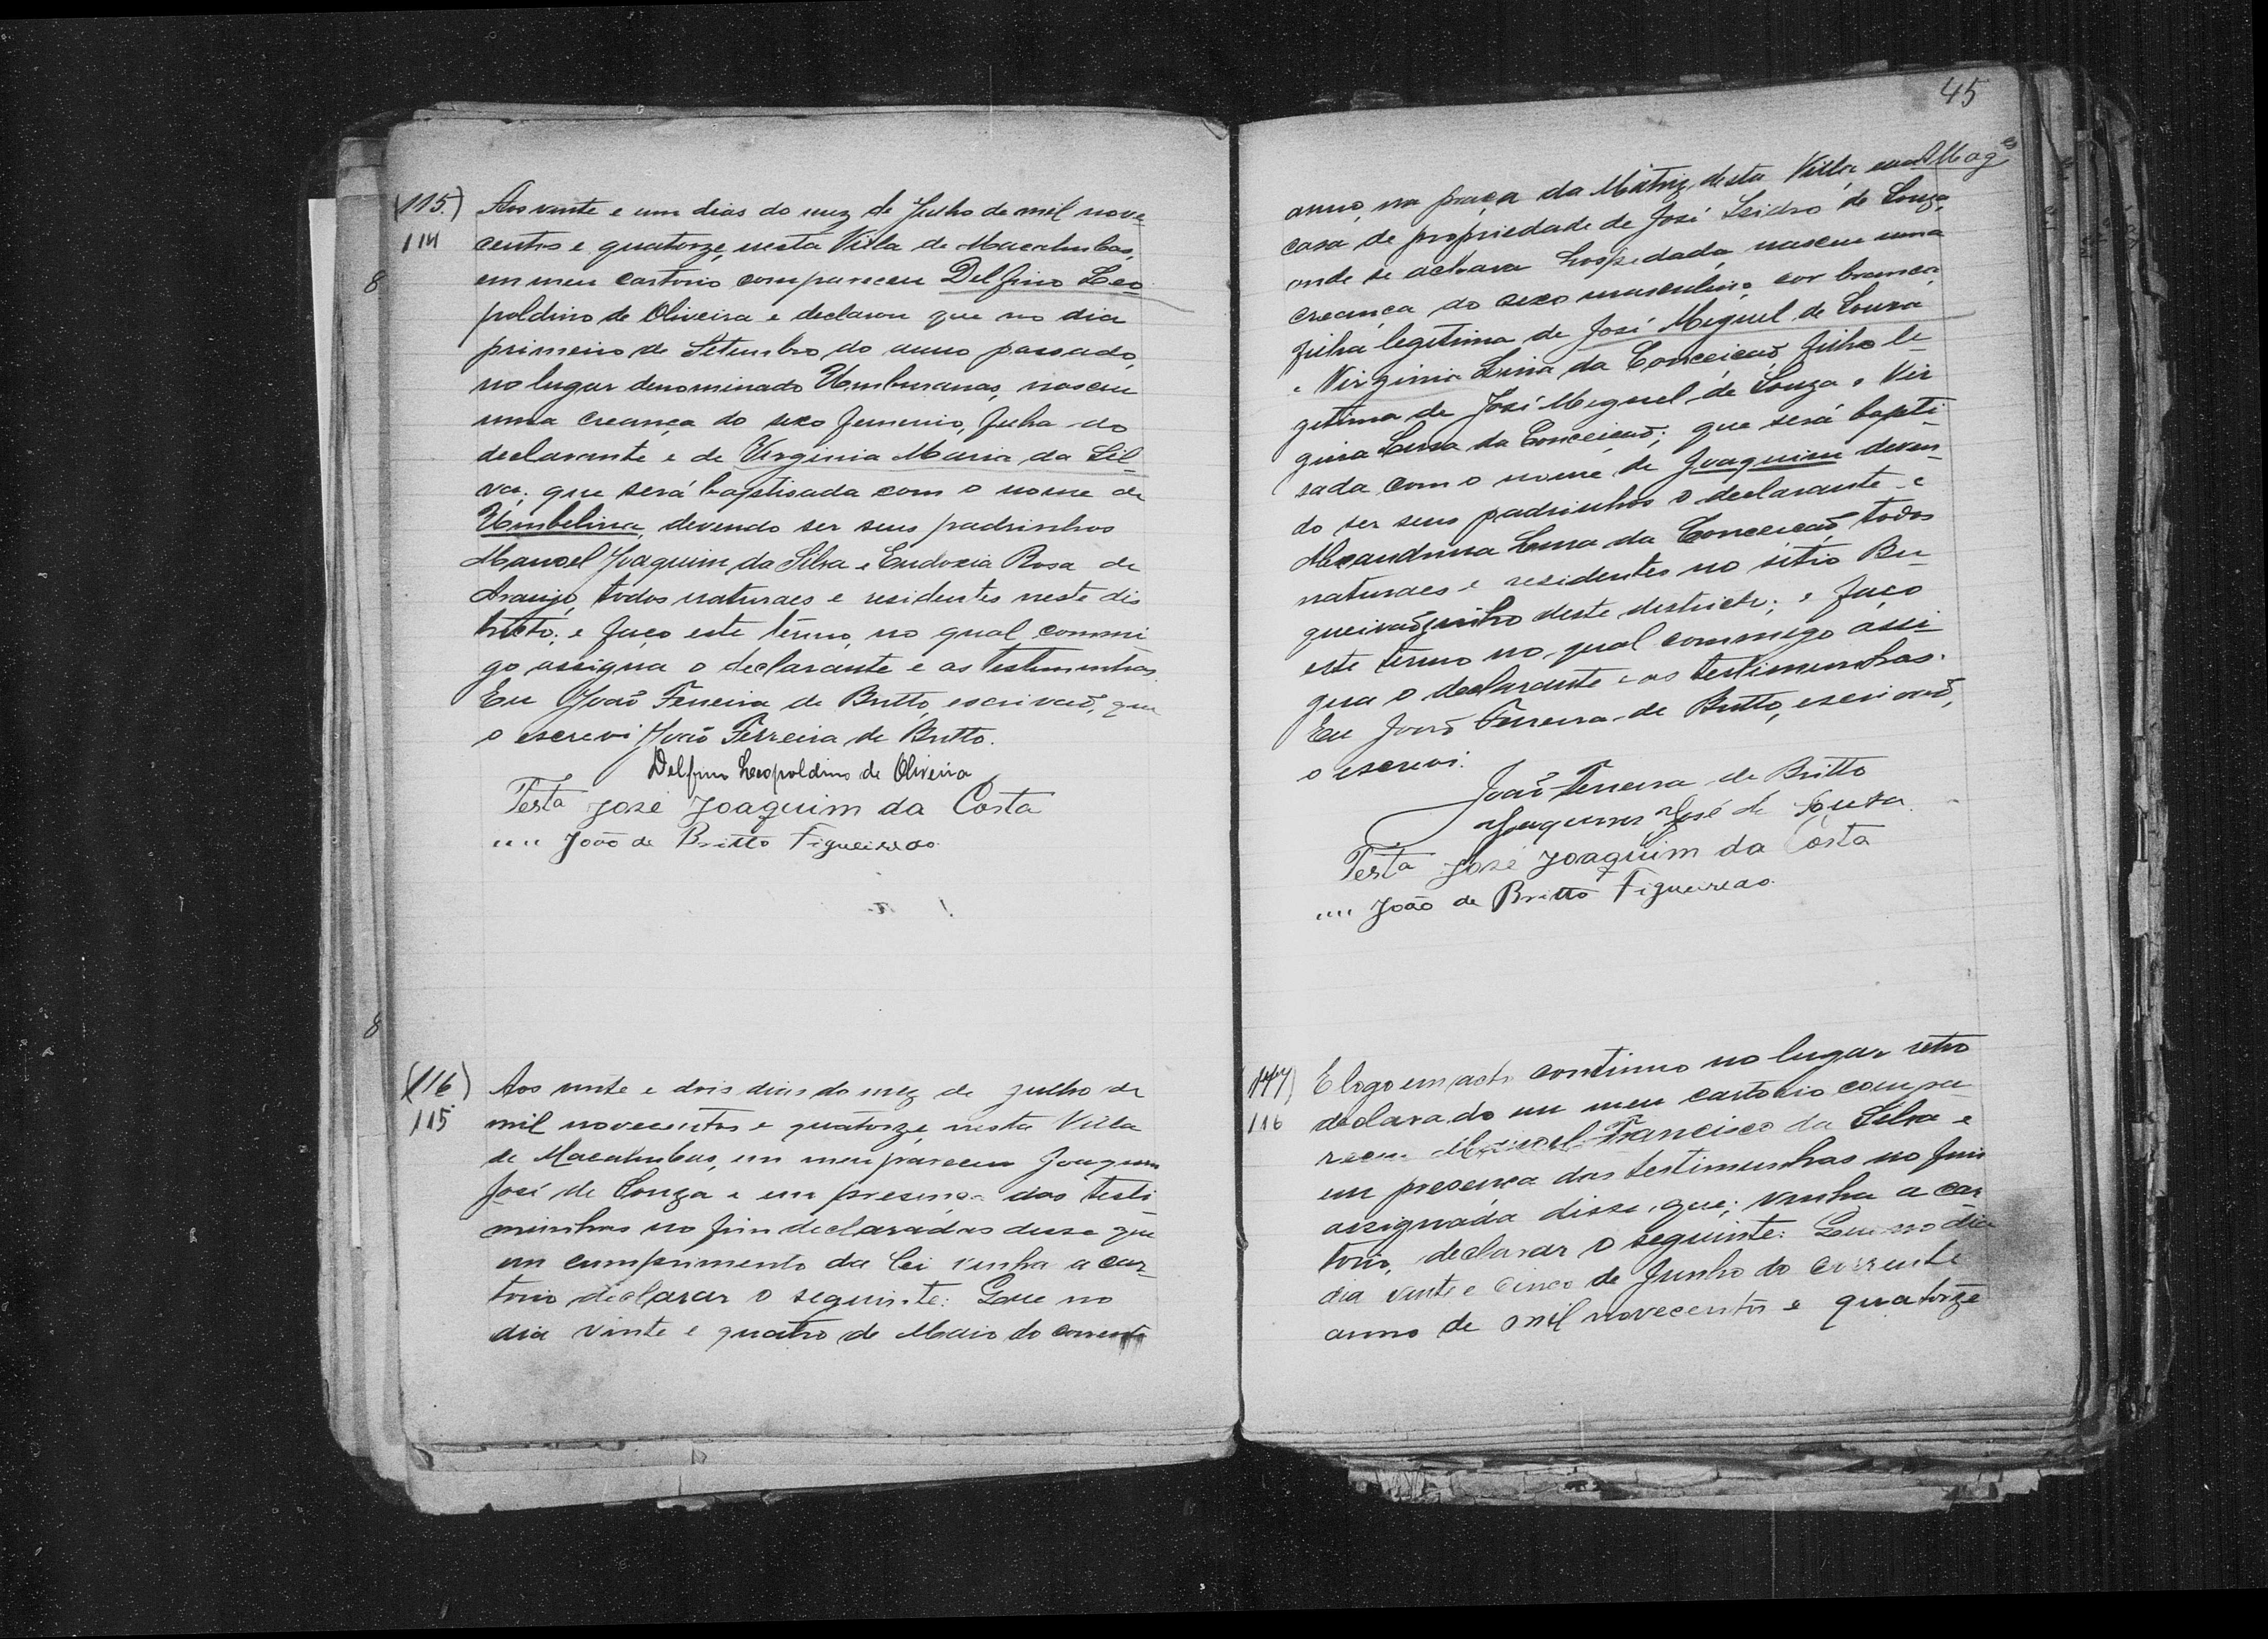 (115.)
114
8
Aos vinte e um dias do mez de Julho de mil nove
centos e quatorze, nesta Villa de Macahubas,
em meu cartorio compareceu Delfino Leo
poldino de Oliveira e declarou que no dia
primeiro de Setembro do anno passado,
no lugar denominado Umburanas, nasceu
uma creança do sexo femenino, filha do
declarante e de Virginia Maria da Sil
va; que será baptisada com o nome de
Umbelina, devendo ser seus padrinhos
Manoel Joaquim da Silva e Eudoxia Rosa de
Araujo, todos naturaes e residentes neste dis
tricto; e faço este termo, no qual commi
go assigna o declarante e as testimunhas.
Eu João Ferreira de Britto, escrivaõ, que
o escrevi João Ferreira de Britto.
Delfino Leopoldino de Oliveira
Testa José Joaquim da Costa
"" João de Britto Figueiredo
8
(116)
115
Aos vinte e dois dias do mez de Julho de
mil novecentos e quatorze, nesta Villa
de Macahubas, em meu pareceu Joaquim
José de Souza e em presença das testi
munhas no fim declaradas disse que
em cumprimento da lei vinha a car
torio declarar o seguinte: Que no
dia vinte e quatro de Maio do corrente
45
anno, na praça da Matriz desta Villa, em
casa de propriedade de José Isidro de Souza,
onde se achava hospedada, nasceu uma
creança do sexo masculino, cor branca,
filha legitima de José Miguel de Souza
e Virginia Lina da Conceicaõ, filho le
gitima de José Miguel de Souza e Vir
ginia Lina da Conceicaõ; que será bapti
sada com o nome de Joaquim deven
do ser seus padrinhos o declarante e
Alexandrina Lina da Conceicaõ, todos
naturaes e residentes no sitio Bu
queiraõzinho deste destricto; e faço
este termo no qual commigo assi
gna o declarante e as testimunhas.
Eu João Ferreira de Britto, escrivaõ,
o escrevi.
João Ferreira de Britto
Joaquim José de Souza
Testa José Joaquim da Costa
"" João de Britto Figueiredo
116
E logo em acto continuo no lugar retro
declarado em meu cartorio compa
receu Manoel Francisco da Silva e
em presença das testimunhas no fim
assignada disse, que; vinha a car
torio, declarar o seguinte: Que no dia
dia vinte e cinco de Junho do corrente
anno de mil novecentos e quatorze